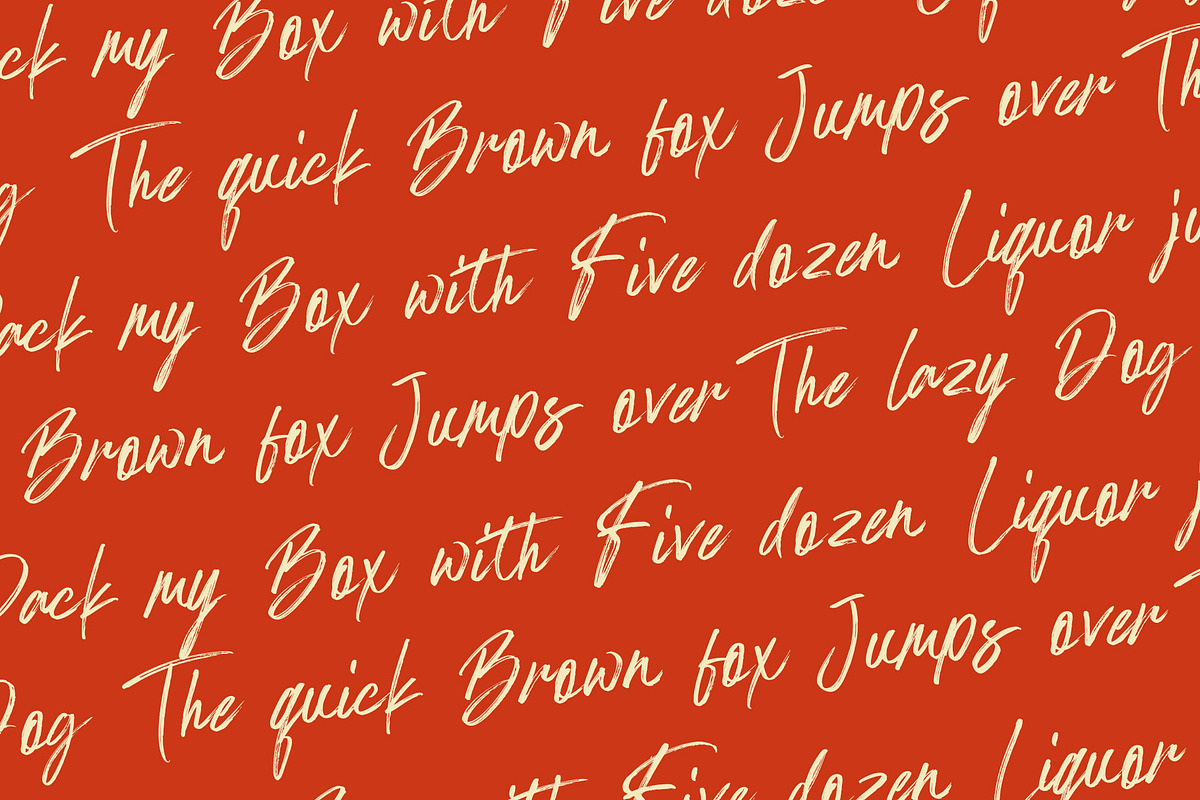 ck my Box with Five dozen
g The quick Brown fox Jumps over Th
ack my Box with Five dozen Liquor ju
Brown fox Jumps over The lazy Dog
Pack my Box with Five dozen Liquor j
Dog The quick Brown fox Jumps over T
with Five dozen Liquor